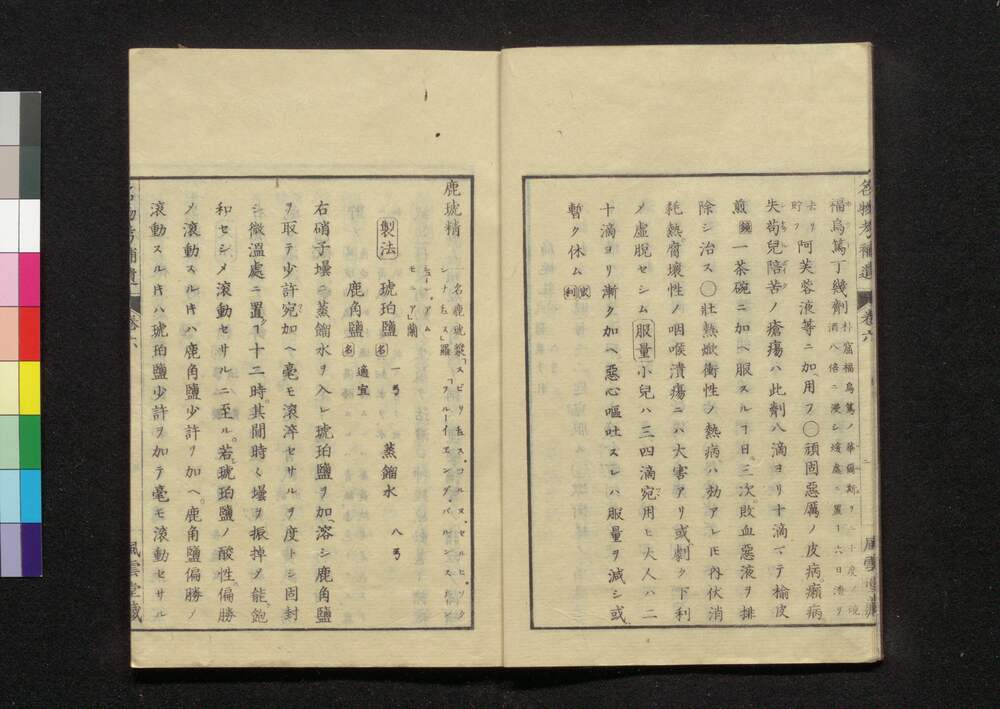 名物考補遺 卷六 風雲堂藏
福烏篤丁幾劑
酒八倍ニ浸シ煖處ニ置ヿ六日渣ヲ
去リ貯フ 阿芙蓉液等ニ加用フ〇頑固惡厲ノ皮病癩病
失苟兒陪苦ノ瘡瘍ハ此劑八滴ヨリ十滴マテ楡皮
煎鏡一茶碗ニ加ヘ服スルヿ日三次敗血惡液ヲ排
除シ治ス〇壯熱焮衝性ノ熱病ハ効アレ𪜈内伏消
耗熱腐壞性ノ咽喉潰瘍ニハ大害アリ或劇ク下利
メ虛脫セシム服量小兒ハ三四滴宛用ヒ大人ハ二
十滴ヨリ漸ク加ヘ惡心嘔吐スレハ服量ヲ減シ或
暫ク休ム
鹿琥精
一名鹿琥漿
製法 琥珀鹽名 一弓 蒸餾水 八弓
鹿角鹽名 適宜
右硝子壜ニ蒸餾水ヲ入レ琥珀鹽ヲ加溶シ鹿角鹽
ヲ取テ少許宛加ヘ毫モ滾滓セサルヲ度トシ固封
シ微溫處ニ置ヿ十二時其間時々壜ヲ振掉メ能飽
和セシメ滾動セサルニ至ル若琥珀鹽ノ酸性偏勝
メ滾動スル𪜈ハ鹿角鹽少許ヲ加ヘ鹿角鹽偏勝ノ
滾動スル𪜈ハ琥珀鹽少許ヲ加テ毫モ滾動セサル
名物考補遺 卷六 風雲堂藏